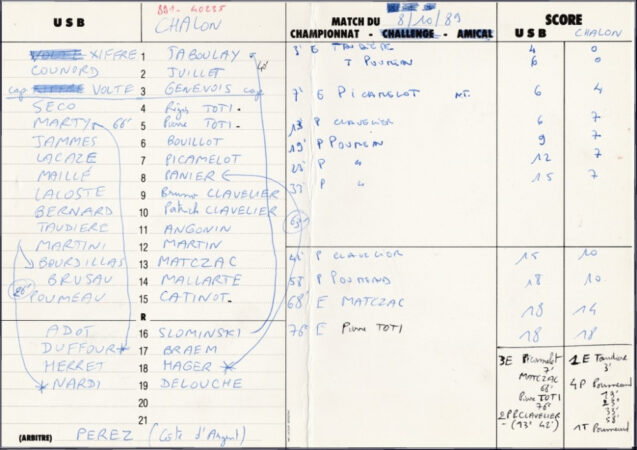 881-40235
U S B CHALON
MATCH DU 8/10/89
CHAMPIONNAT - CHALLENGE - AMICAL
SCORE
U S B CHALON
XIFFRE 1 JABOULAY 40'
COUNORD 2 JUILLET
cap VOLTE 3 GENEVOIS cap
SECO 4 Régis TOTI
MARTY 66' 5 Pierre TOTI
JAMMES 6 BOUILLOT
LACAZE 7 PICAMELOT
MAILLÉ 8 PANIER
LALOSTE 9 Bruno CLAVELIER
BERNARD 10 Patrick CLAVELIER
TAUDIERE 11 ANGONIN
MARTINI 12 MARTIN
BOURDILLAS 13 MATCZAC
BRUSAU 14 MALLARTE
POUMEAU 15 CATINOT
R
ADOT 16 SLOMINSKI
DUFFOUR 17 BRAEM
HERRET 18 HAGER
NARDI 19 DELOUCHE
20
21
(ARBITRE) PEREZ (Côte d'Argent)
3' E TAUDIERE 4 0
T POUMEAU 6 0
7' E PICAMELOT NT. 6 4
13' P CLAVELIER 6 7
19' P POUMEAU 9 7
23' P " 12 7
33' P " 15 7
63'
42' P CLAVELIER 15 10
58' P POUMEAUD 18 10
68' E MATCZAC 18 14
76' E Pierre TOTI 18 18
3E Picamelot 1E Taudiere
7' 3'
MATCZAC 4P Poumeaud
68' 19'
Pierre TOTI 23'
76' 33'
2P P.CLAVELIER 58'
- (13' 42') 1T Poumeaud